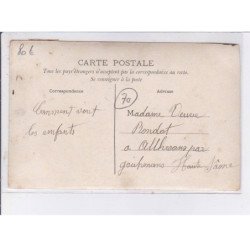 80 €
CARTE POSTALE
Tous les pays étrangers n'acceptent pas la correspondance au recto.
Se renseigner à la poste
Correspondance
Adresse
70
Comment vont
les enfants
Madame Veuve
Bondot
a Althesans par
gouhenans Haute Saône